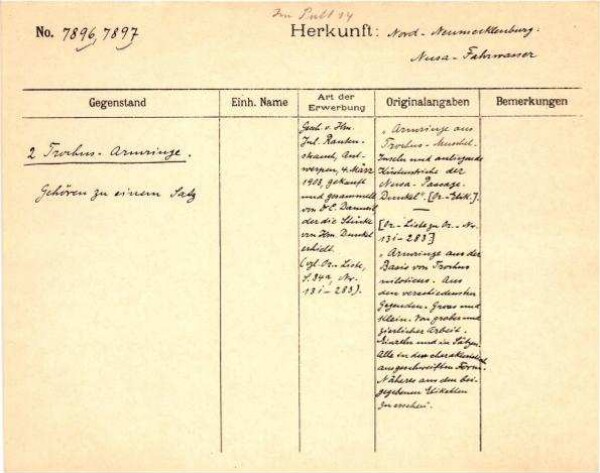 Im Pult 14
No. 7896, 7897
Herkunft: Nord-Neumecklenburg.
Nusa-Fahrwasser
Gegenstand
Einh. Name
Art der
Erwerbung
Originalangaben
Bemerkungen
2 Trochus-Armringe.
Gehören zu einem Satz
Gesch. v. Hrn.
Jul. Rauten-
strauch, Ant-
werpen, 4. März
1908, gekauft
und gesammelt
von
der die Stücke
von Hrn Dunkel
erhielt.
(vgl. Or.-Liste,
S. 34a, Nr.
13 i-283).
"Armringe aus
Trochus-Muschel.
Inseln und anliegende
Küstenstriche der
Nusa-Passage.
Dunkel". [Or-Etik.].
[Or-Liste zu Or.-Nr.
13 i-283]
"Armringe aus der
Basis von Trochus
niloticus. Aus
den verschiedensten
Gegenden. Gross und
klein. Von grober und
zierlicher Arbeit.
Einzeln und in Sätzen.
Alle in der charakteristisch
ausgeschweiften Form.
Näheres aus den bei-
gegebenen Etiketten
zu ersehen".